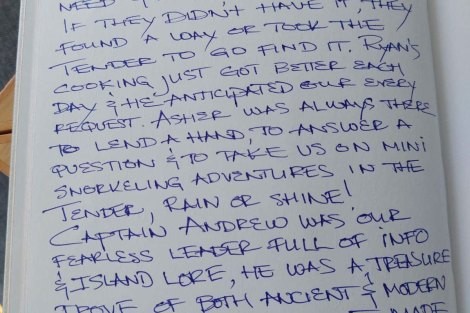 NEED
IF THEY DIDN'T HAVE IT, THEY
FOUND A WAY OR TOOK THE
TENDER TO GO FIND IT. RYAN'S
COOKING JUST GOT BETTER EACH
DAY & HE ANTICIPATED OUR EVERY
REQUEST. ASHER WAS ALWAYS THERE
TO LEND A HAND, TO ANSWER A
QUESTION & TO TAKE US ON MINI
SNORKELING ADVENTURES IN THE
TENDER, RAIN OR SHINE!
CAPTAIN ANDREW WAS OUR
FEARLESS LEADER FULL OF INFO
& ISLAND LORE, HE WAS A TREASURE
TROVE OF BOTH ANCIENT & MODERN
MADE